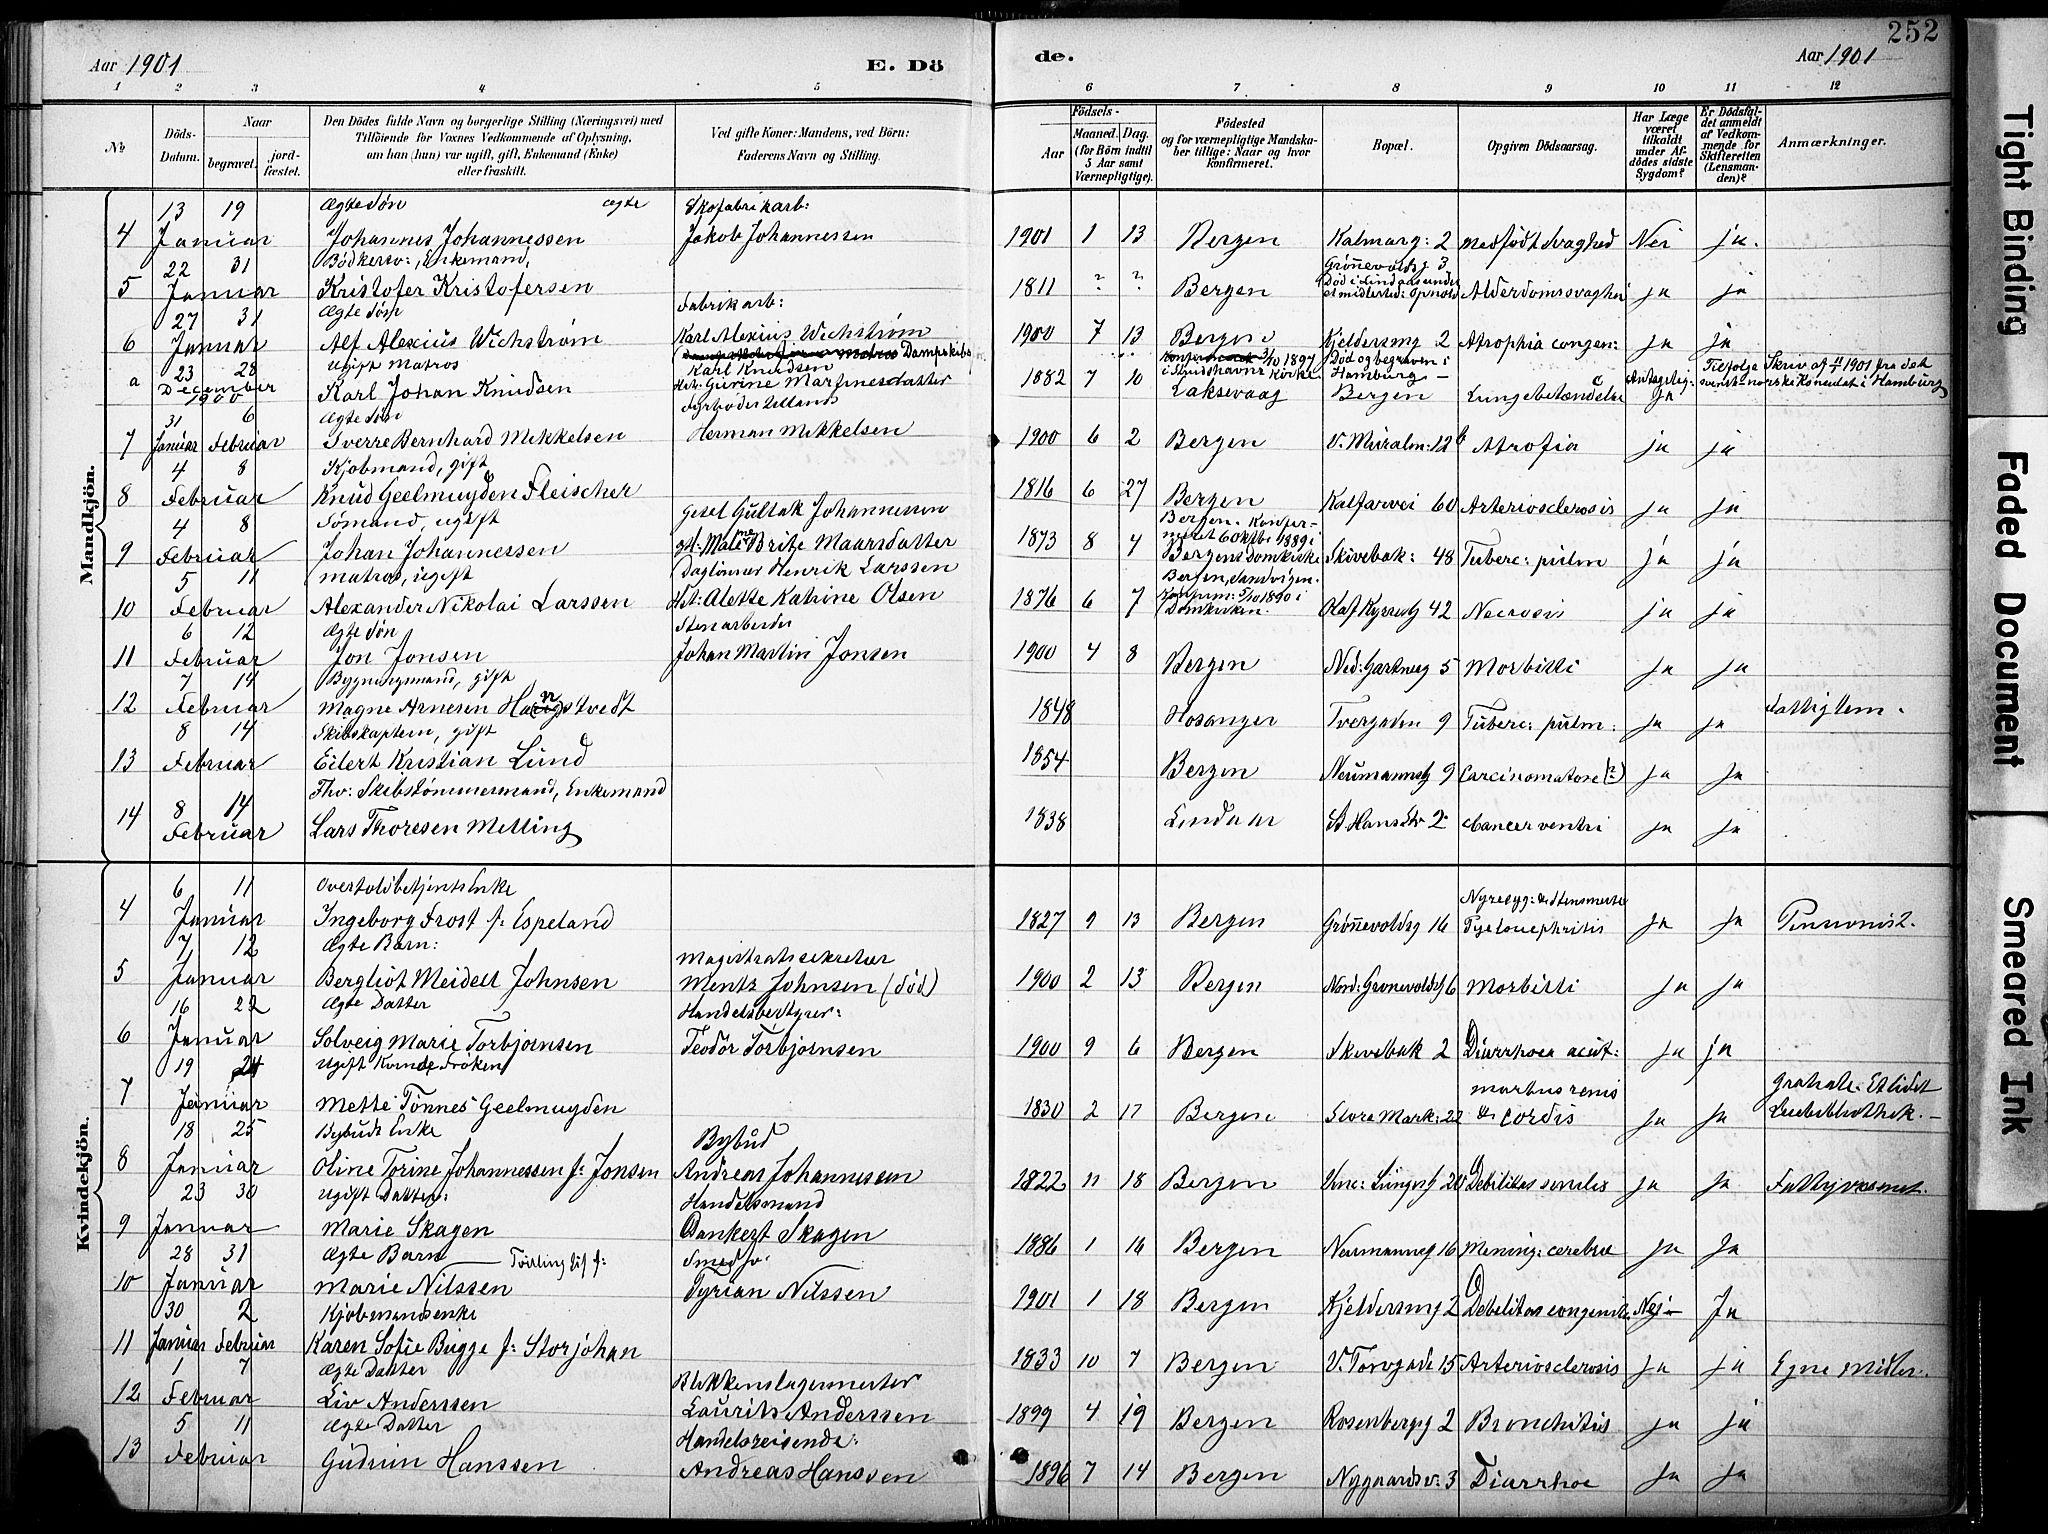 252
Aar 1901
E. Dö
de.
Aar 1901
1 2 3 4 5 6 7 8 9 10 11 12
No
Döds-Datum.
Naar
begravet.
jord-fæstet.
Den Dödes fulde Navn og borgerlige Stilling (Næringsvei) med
Tilföiende for Voxnes Vedkommende af Oplysning,
om han (hun) var ugift, gift, Enkemand (Enke)
eller fraskilt.
Ved gifte Koner: Mandens, ved Börn:
Faderens Navn og Stilling.
Födsels-
Aar
Maaned. Dag.
(for Börn indtil
5 Aar samt
Værnepligtige).
Födested
og for værnepligtige Mandska-
ber tillige: Naar og hvor
konfirmeret.
Bopæl.
Opgiven Dödsaarsag.
Har Læge
været
tilkaldt
under Af-
dödes sidste
Sygdom?
Er Dödsfal-
det anmeldt
af Vedkom-
mende for
Skifteretten
(Lensman-
den)?
Anmærkninger.
Mandkjön.
13 19 Ægte Søn ægte Skofabrikarb:
4 Januar Johannes Johannessen Jakob Johannessen 1901 1 13 Bergen Kalmarg: 2 Medfødt Svaghed Nei ja.
22 31 Bødkersv:, Enkemand, Grønevoldsg 3
5 Januar Kristofer Kristofersen 1811 ? ? Bergen Alderdomssvaghed ja ja
27 31 Ægte Søn Fabrikarb:
6 Januar Alf Alexius Wichstrøm Karl Alexius Wichstrøm 1900 7 13 Bergen Kjeldersmg 2 Atrophia congen: ja ja
23 28 Ugift Matros Karl Knudsen Død og begraven i Hamburg
a December 1900 Karl Johan Knudsen Gurine Martinesdatter 1882 7 10 Laksevaag Bergen Lungebetændelse ja Tilfølge Skriv af 4/1 1901 fra det svensk-norske Konsulat i Hamburg
31 6 Ægte Søn Fyrbøder
7 Januar Februar Sverre Bernhard Mikkelsen Herman Mikkelsen 1900 6 2 Bergen V. Muralm: 12b Atrofia ja ja
4 8 Kjøbmand, gift
8 Februar Knud Geelmuyden Fleischer 1816 6 27 Bergen Kalfarvei 60 Arteriosclerosis ja ja
4 8 Sømand, ugift Gesel Gullak Johannessen
9 Februar Johan Johannessen Brite Maarsdatter 1873 8 4 Bergen. Konfirmeret 6 Oktbr 1889 i Bergens Domkirke Skivebak: 48 Tuberc: pulm ja ja
5 11 Matros, ugift Daglønner Henrik Larssen
10 Februar Alexander Nikolai Larssen Hst: Alette Katrine Olsen 1876 6 7 Bergen, Sandvigen. 5/10 1890 i Domkirken. Olaf Kyrresg 42 Necrosis ja ja
6 12 Ægte Søn Stenarbeider
11 Februar Jon Jonsen Johan Martin Jonsen 1900 4 8 Bergen Ned: Gartnerg 5 Morbilli ja ja
7 14 Bygningsmand, gift
12 Februar Magne Arnesen 1848 Hosanger Tvergaden 9 Tuberc: pulm: ja ja Fattiglem.
8 14 Skibskaptein, gift
13 Februar Eilert Kristian Lund 1854 Bergen Neumannsg 9 Carcinomatose (?) ja ja
Fhv: Skibstømmermand, Enkemand
14 8 14 Februar Lars Thoresen Melting 1838 Lindaas St Hans Str 2 Cancer ventri ja ja
Kvindekjön.
6 11 Overtoldbetjents Enke
4 Januar Ingeborg Frost f: Espeland 1827 9 13 Bergen Grønevoldsg 16 Pyelonephritis ja ja Pensionist.
7 12 Ægte Barn: Magistratssekretær
5 Januar Bergliot Meidell Johnsen Mentz Johnsen (død) 1900 2 13 Bergen Nord: Grønevoldsg 6 Morbilli ja ja
16 22 Ægte Datter Handelsbestyrer:
6 Januar Solveig Marie Torbjørnsen Teodor Torbjørnsen 1900 9 6 Bergen Skivebak 2 Diarrhoea acut: ja ja
19 24 Ugift Kvinde Frøken
7 Januar Mette Tønnes Geelmuyden 1830 2 17 Bergen Store Mark: 22 Morbus renis & cordis ja ja
18 25 Bybuds Enke Bybud
8 Januar Oline Torine Johannessen f: Jonsen Andreas Johannessen 1822 11 18 Bergen Debilitas senilis ja ja Fattigvæsenet.
23 30 Ugift Datter: Handelsmand
9 Januar Marie Skagen Dankert Skagen 1886 1 16 Bergen Neumannsg 16 Mening: cerebri ja ja
28 31 Ægte Barn Tvilling Smedsv.
10 Januar Marie Nilssen Tyrian Nilssen 1901 1 18 Bergen Kjeldersmg 2 Debilitas congenita Nei ja
30 2 Kjøbmandsenke
11 Januar Februar Karen Sofie Bugge f: Storjohan 1833 10 7 Bergen V. Torvgade 15 Arteriosclerosis ja ja Egne Midler.
1 7 Ægte Datter Blikkenslagermester
12 Februar Liv Anderssen Laurits Anderssen 1899 4 19 Bergen Rosenbergsg 2 Bronchitis ja ja
5 11 Ægte Datter Handelsreisende:
13 Februar Gudrun Hanssen Andreas Hanssen 1896 7 14 Bergen Nygaardsv: 3 Diarrhoe ja ja
Tight Binding
Faded Document
Smeared Ink